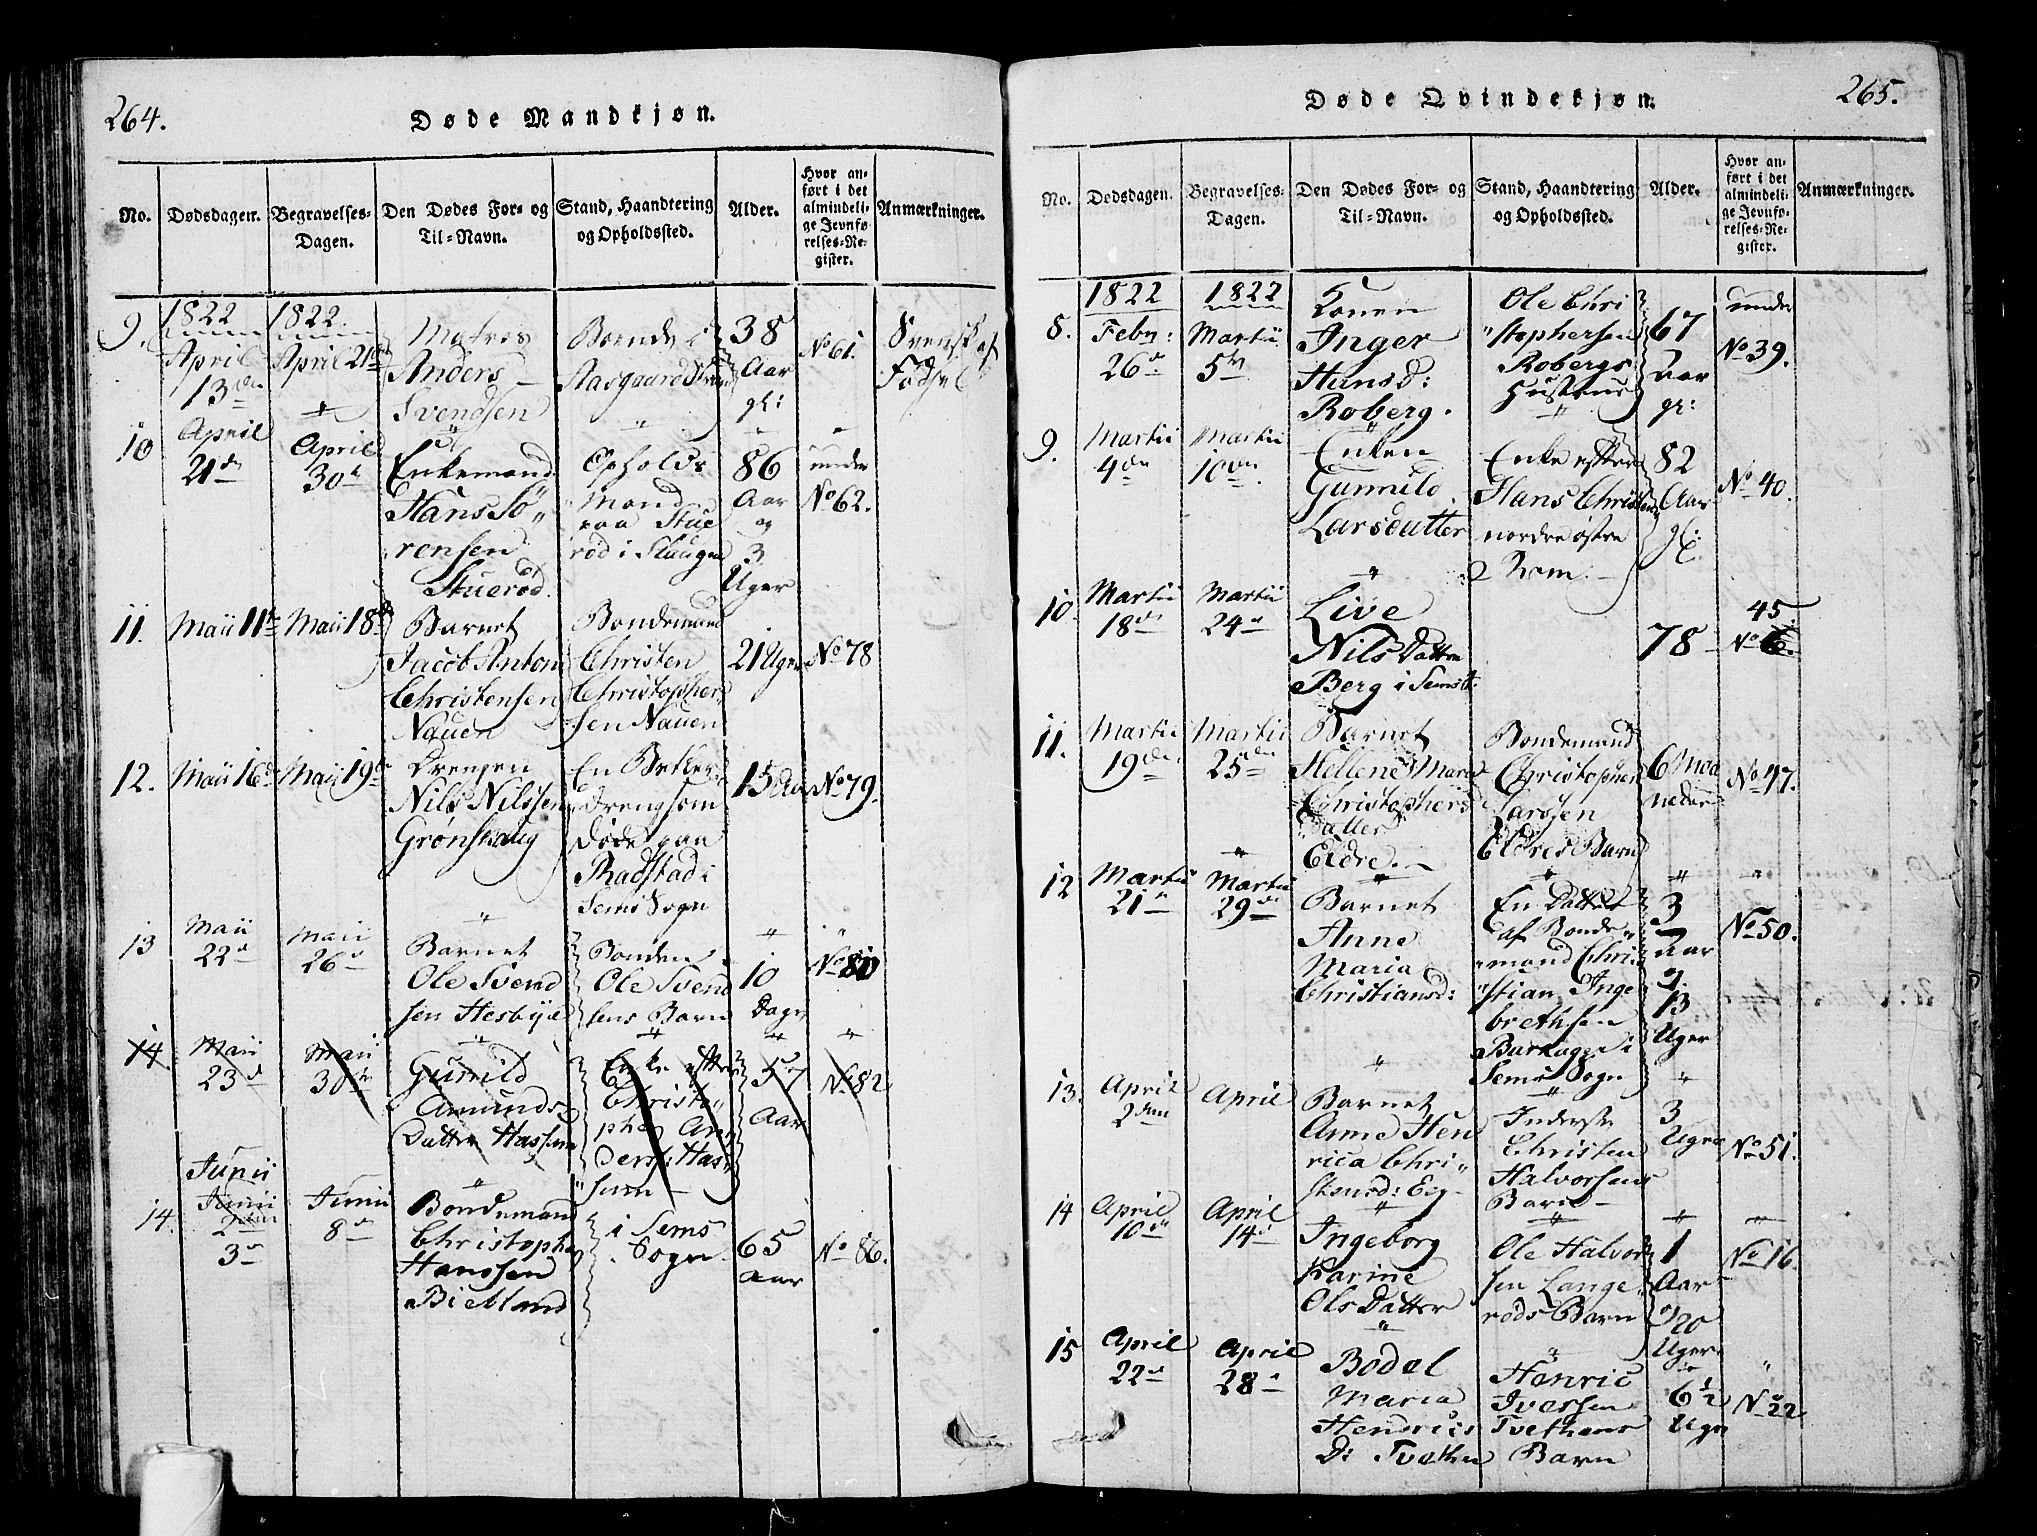 264.
Døde Mandkjøn.
No. Dødsdagen. Begravelses-Dagen. Den Dødes For- og Til-Navn. Stand, Haandtering og Opholdssted. Alder. Hvor anført i det almindelige Jevnførelses-Register. Anmærkninger.
9.
1822
April
13de
1822.
April 21de
Matros
Anders
Svendsen
Boende i
Aasgaardstrand
38
Aar
gl:
No 61.
Svensk af
Fødsel
10
April
21de
April
30te
Enkemand
Hans Sö„
rensen
Stuerød.
Opholds
Mand
paa Stue
rød i Slaugen
86
Aar
og
3
Uger
under
No 62.
11.
Maii 11te
Maii 18de
Barnet
Jacob Anton
Christensen
Nauen
Bondemand
Christen
Christopher
sen Nauen
21 Uger
No 78
12.
Maii 16de
Maii 19de
Drengen
Nils Nilssen
Grønshaug
En Betler
Dreng som
døde paa
Radstad i
Sems Sogn
15 Aar
No 79.
13
Maii
22de
Maii
26de
Barnet
Ole Svend
sen Hesbye
Bonden
Ole Svend
sens Barn
10
Dage
No 80
14.
Maii
23de
Maii
30te
Gunild
Amunds
Datter Hassum
Enke efter
Christo„
pher An
ders: Has
sum
57
Aar
No 82
14.
Junii
Junii
2den
3de
Junii
8de
Bondemand
Christopher
Hanssen
Bielland
i Sems
Sogn
65
Aar
No 86.
265.
Døde Qvindekjøn.
No. Dødsdagen. Begravelses-Dagen. Den Dødes For- og Til-Navn. Stand, Haandtering og Opholdssted. Alder. Hvor anført i det almindelige Jevnførelses-Register. Anmærkninger.
8.
1822
Febr:
26de
1822
Martii
5te
Konen
Inger
Hansd:
Roberg.
Ole Chri
„stophersen
Robergs
Hustrue
67
Aar
gl:
under
No 39.
9.
Martii
4de
Martii
10de
Enken
Gunnild
Larsdatter
Enke efter
Hans Christens
nordre østre
Rom.
82
Aar
gl:
No 40.
10.
Martii
18de
Martii
24de
Live
Nils Datter
Berg i Sems
78
45
No 6.
11.
Martii
19de
Martii
25de
Barnet
Hellene Marie
Christophers
Datter
Eldre.
Bondemand
Christopher
Larssen
Eldres Barn
6 Maa
neder
No 47.
12
Martii
21de
Martii
29de
Barnet
Anne
Maria
Christiansd:
En Datter
af Bonde„
„mand Chri
„stian Inge
brethsen
Barkager i
Sems Sogn
3
Aar
og
13
Uger
No 50.
13.
April
2den
April
Barnet
Anne Hen
rica Chri„
stensd: Eeg
Inderste
Christen
Halvorsens
Barn
3
Uger
No 51.
14
April
10de
April
14de
Ingeborg
Karine
Ols Datter
Ole Halvor
sen Lange
røds Barn
1
Aar
og
20
Uger
No 16.
15
April
22de
April
28de
Bodel
Maria
Hendrics
D: Tvethen
Henric
Iversen
Tvethens
Barn
6½
Uger
No 22